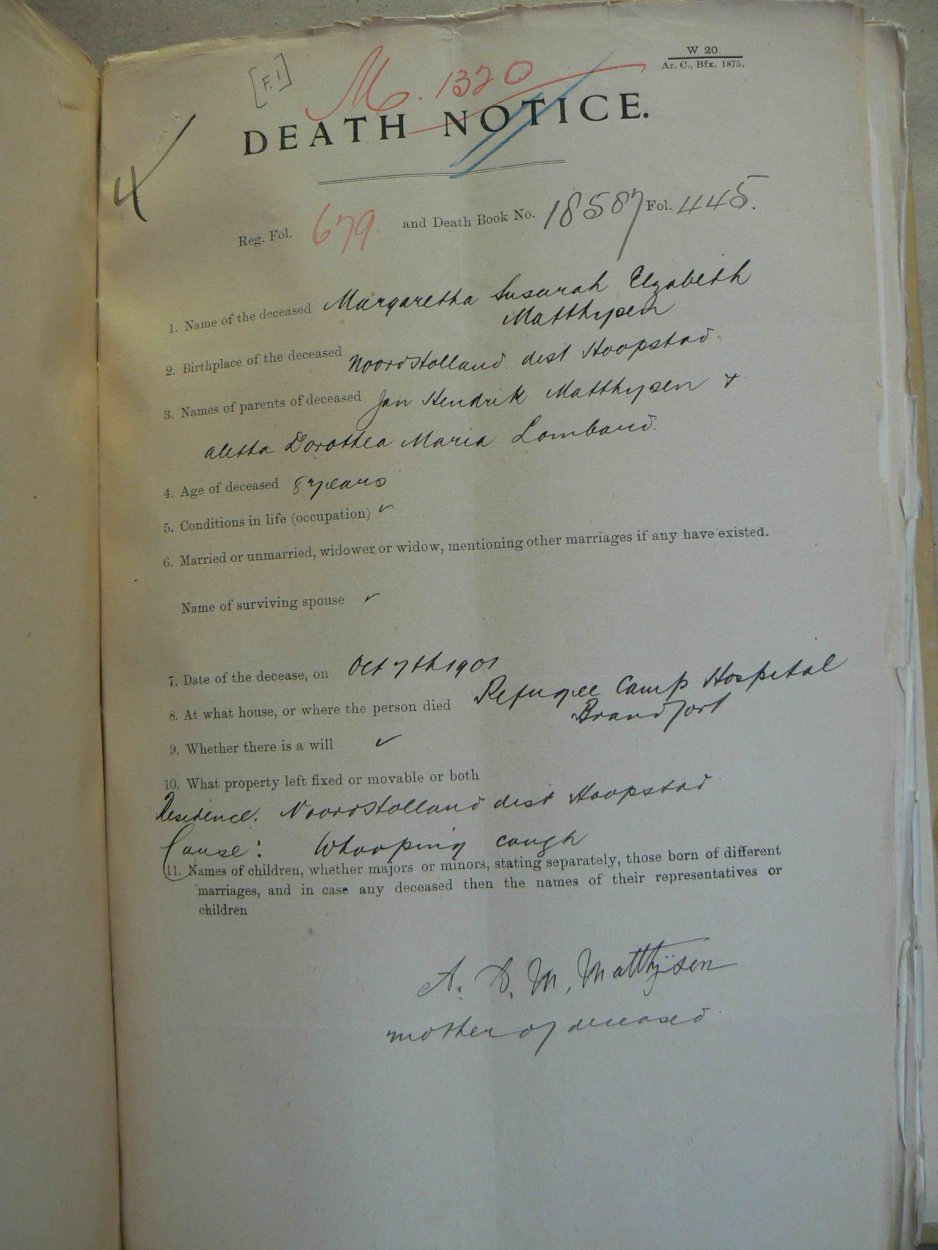 W 20.
Ar. C., Bfx. 1875.
[F.1]
M. 1320
4
DEATH NOTICE.
Reg. Fol. 679 and Death Book No. 18587 Fol. 445.
1. Name of the deceased Margaretha Susarah Elzabeth
Matthysen
2. Birthplace of the deceased Noord Holland dist Hoopstad.
3. Names of parents of deceased Jan Hendrik Matthysen +
Aletta Dorothea Maria Lombaard.
4. Age of deceased 8 years
5. Conditions in life (occupation) ✓
6. Married or unmarried, widower or widow, mentioning other marriages if any have existed.
Name of surviving spouse ✓
7. Date of the decease, on Oct 7th 1901
8. At what house, or where the person died Refugee Camp Hospital
Brandfort
9. Whether there is a will ✓
10. What property left fixed or movable or both
Residence. Noord Holland dist Hoopstad
Cause: Whooping cough
11. Names of children, whether majors or minors, stating separately, those born of different
marriages, and in case any deceased then the names of their representatives or
children
A. D. M. Matthijsen
mother of deceased.